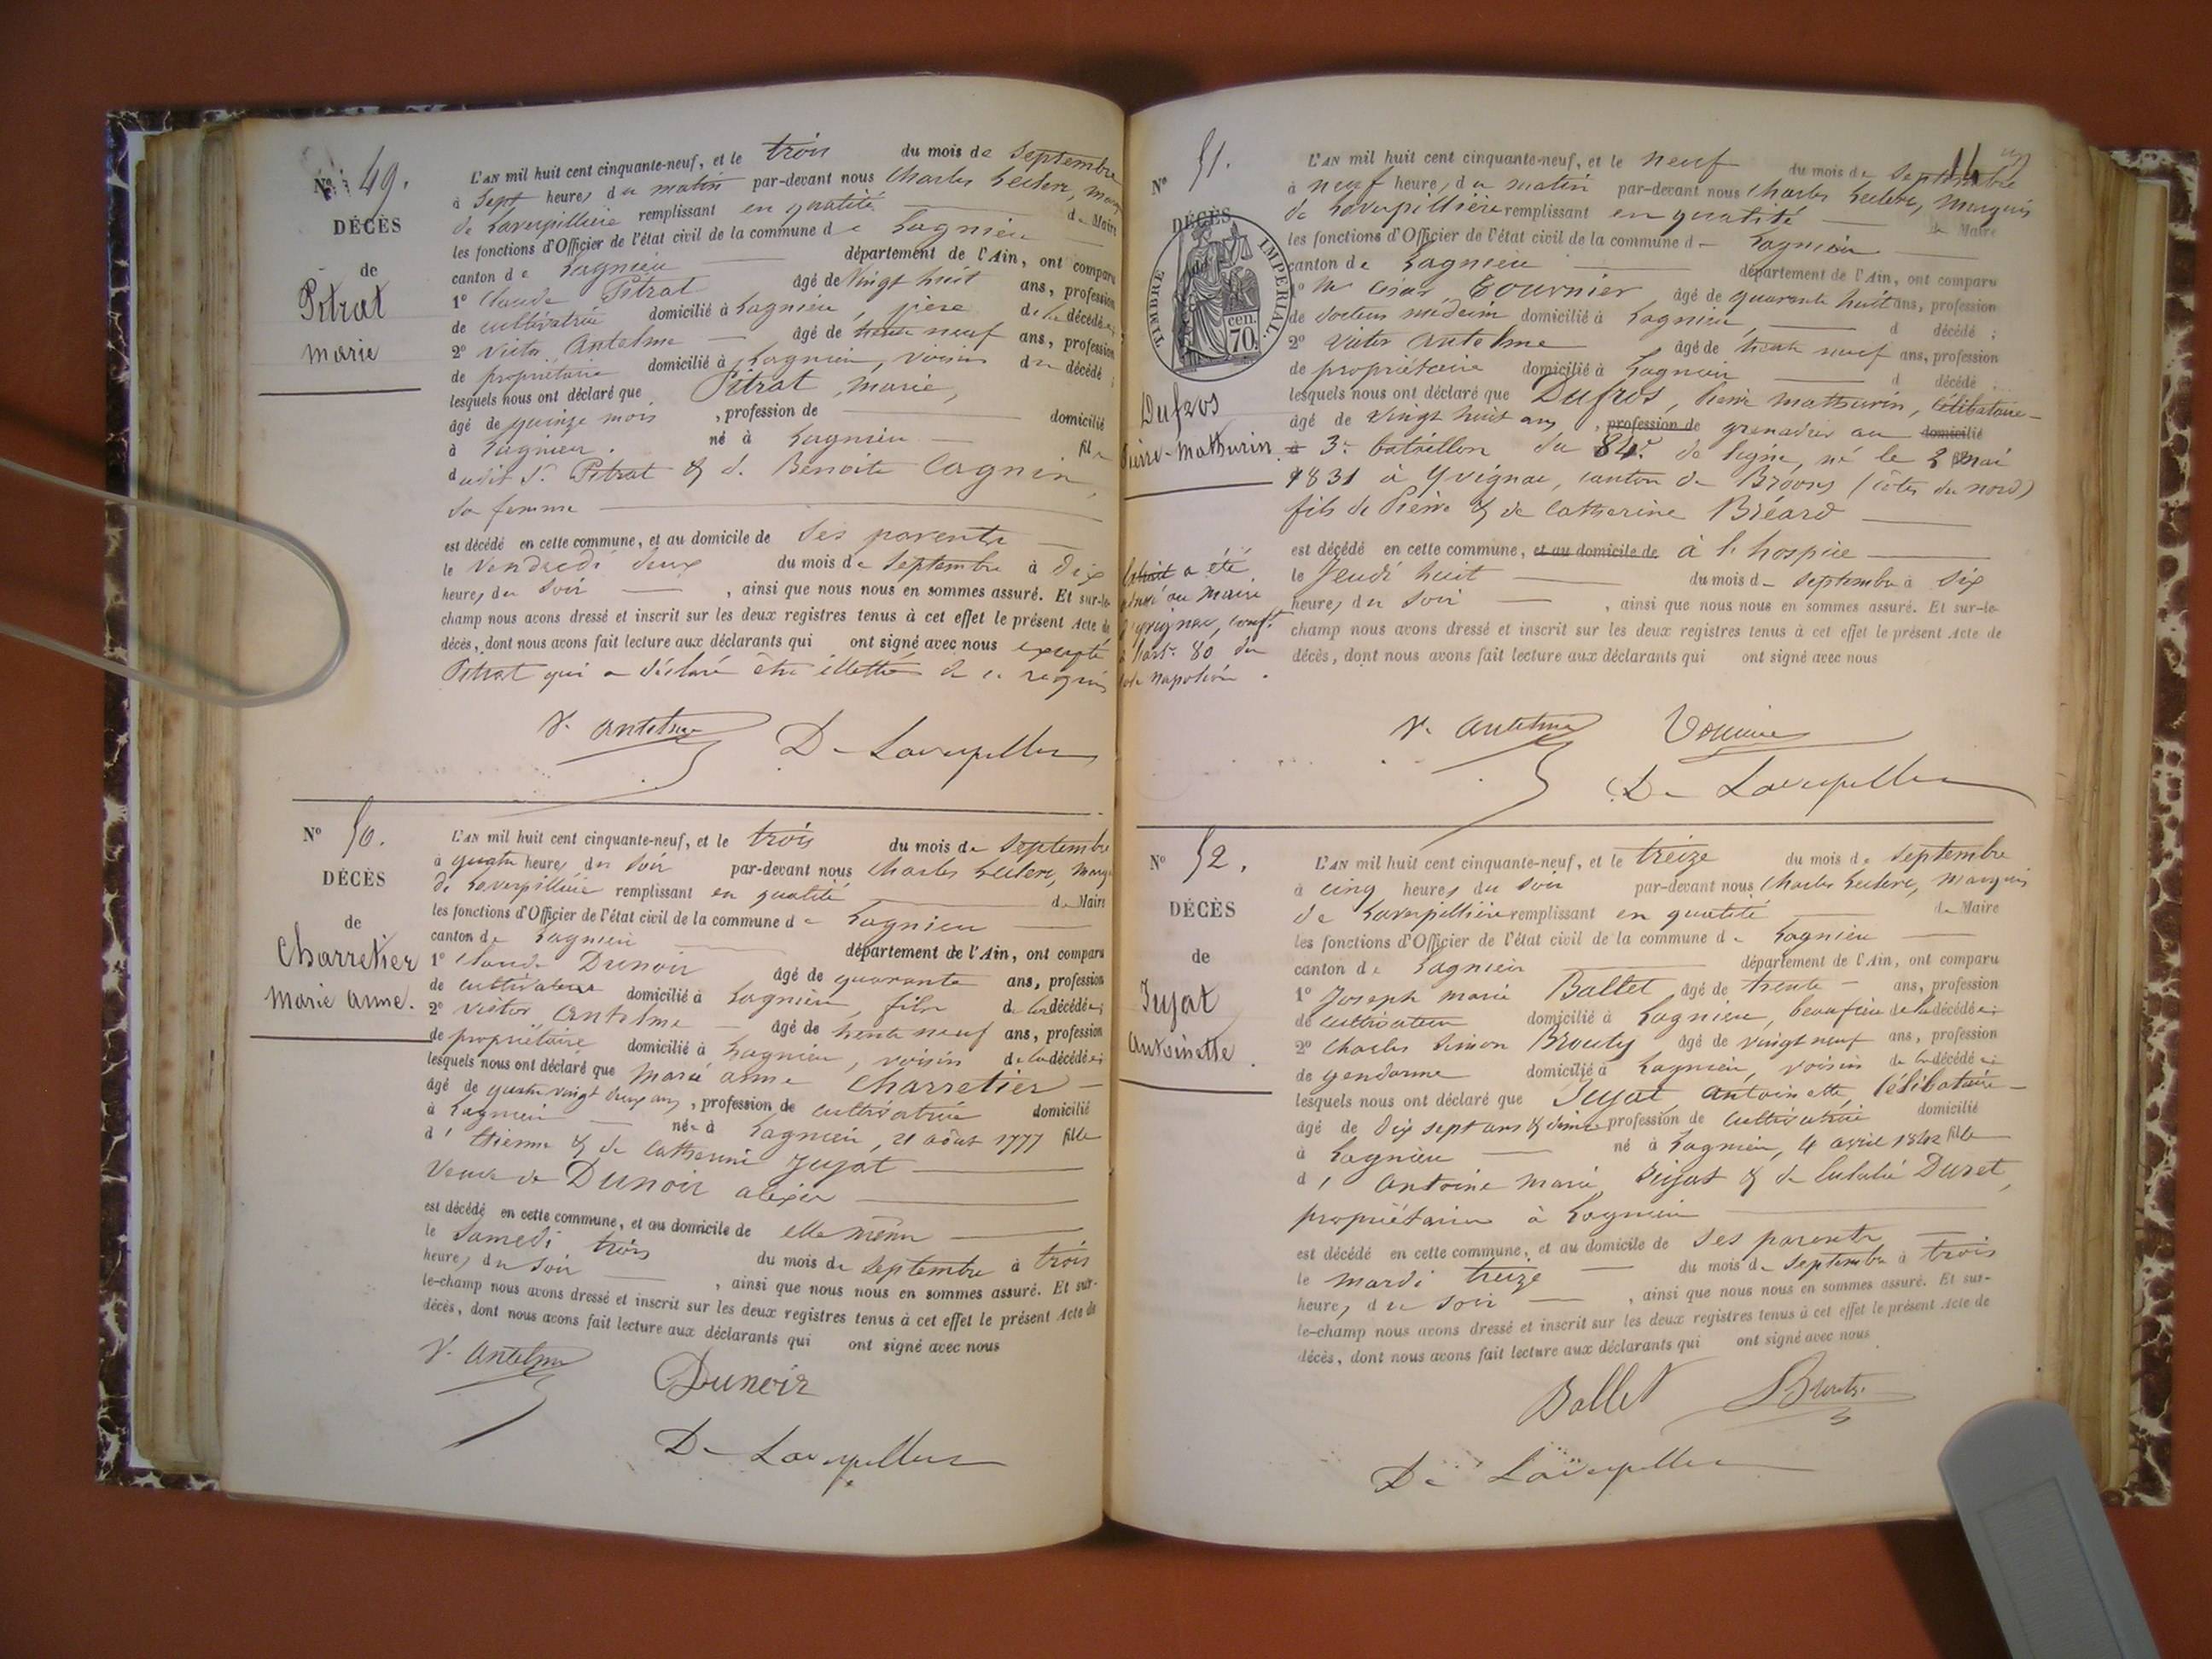 N° 49.
DÉCÈS
de
Pitrat
marie
L'AN mil huit cent cinquante-neuf, et le trois du mois de Septembre
à Sept heures du matin par-devant nous Charles Leclerc, marq
de Laverpillière remplissant en qualité de Maire
les fonctions d'Officier de l'état civil de la commune de Lagnieu
canton de Lagnieu département de l'Ain, ont comparu
1° Claude Pitrat âgé de Vingt huit ans, profession
de cultivatrice domicilié à Lagnieu, père de la décédée;
2° Victor Antelme âgé de trente neuf ans, profession
de propriétaire domicilié à Lagnieu, voisin du décédé;
lesquels nous ont déclaré que Pitrat, marie,
âgé de quinze mois, profession de domicilié
à Lagnieu. né à Lagnieu fille
dudit S. Pitrat & d. Benoite Cagnin,
sa femme
est décédé en cette commune, et au domicile de Ses parents
le Vendredi deux du mois de Septembre à dix
heures du Soir, ainsi que nous nous en sommes assuré. Et sur-le-
champ nous avons dressé et inscrit sur les deux registres tenus à cet effet le présent Acte de
décès, dont nous avons fait lecture aux déclarants qui ont signé avec nous excepté
Pitrat qui a déclaré être illettré de ce requis
V. Antelme De Laverpillière
N° 50.
DÉCÈS
de
Charretier
Marie Anne.
L'AN mil huit cent cinquante-neuf, et le trois du mois de Septembre
à quatre heures du Soir par-devant nous Charles Leclerc, marq
de Laverpillière remplissant en qualité de Maire
les fonctions d'Officier de l'état civil de la commune de Lagnieu
canton de Lagnieu département de l'Ain, ont comparu
1° Claude Dunoir âgé de quarante ans, profession
de cultivateur domicilié à Lagnieu, fils de la décédée;
2° Victor Antelme âgé de trente neuf ans, profession
de propriétaire domicilié à Lagnieu, voisin de la décédée;
lesquels nous ont déclaré que Marie anne Charretier
âgé de quatre vingt deux ans, profession de cultivatrice domicilié
à Lagnieu née à Lagnieu, 21 août 1777 fille
d'étienne & de Catherine Jujat
Veuve de Dunoir alexis
est décédé en cette commune, et au domicile de elle même
le Samedi trois du mois de Septembre à trois
heures du Soir, ainsi que nous nous en sommes assuré. Et sur-
le-champ nous avons dressé et inscrit sur les deux registres tenus à cet effet le présent Acte de
décès, dont nous avons fait lecture aux déclarants qui ont signé avec nous
V. Antelme Dunoir
De Laverpillière
N° 51.
DÉCÈS
TIMBRE IMPERIAL.
70 cen.
Dufros
Pierre-Mathurin
a été
au Maire
d'yvignac, conft
à l'art. 80 du
code Napoléon.
L'AN mil huit cent cinquante-neuf, et le neuf du mois de Septembre
à neuf heures du matin par-devant nous Charles Leclerc, Marquis
de Laverpillière remplissant en qualité de Maire
les fonctions d'Officier de l'état civil de la commune de Lagnieu
canton de Lagnieu département de l'Ain, ont comparu
1° Mr César Tournier âgé de quarante huit ans, profession
de docteur médecin domicilié à Lagnieu, d décédé;
2° Victor Antelme âgé de trente neuf ans, profession
de propriétaire domicilié à Lagnieu d décédé;
lesquels nous ont déclaré que Dufros, Pierre Mathurin, célibataire
âgé de Vingt huit ans, profession de grenadier au domicilié
à 3e bataillon du 84e de ligne, né le 2 Mai
1831 à Yvignac, canton de Broons (côtes du nord)
fils de Pierre & de Catherine Bréard
est décédé en cette commune, et au domicile de à l'hospice
le Jeudi huit du mois de Septembre à Six
heures du Soir, ainsi que nous nous en sommes assuré. Et sur-le-
champ nous avons dressé et inscrit sur les deux registres tenus à cet effet le présent Acte de
décès, dont nous avons fait lecture aux déclarants qui ont signé avec nous
V. Antelme Tournier
De Laverpillière
N° 52.
DÉCÈS
de
Jujat
Antoinette.
L'AN mil huit cent cinquante-neuf, et le treize du mois de Septembre
à cinq heures du Soir par-devant nous Charles Leclerc, Marquis
de Laverpillière remplissant en qualité de Maire
les fonctions d'Officier de l'état civil de la commune de Lagnieu
canton de Lagnieu département de l'Ain, ont comparu
1° Joseph marie Ballet âgé de trente ans, profession
de cultivateur domicilié à Lagnieu, beau frère de la décédée;
2° Charles Simon Brouty âgé de vingt neuf ans, profession
de gendarme domicilié à Lagnieu, voisin de la décédée;
lesquels nous ont déclaré que Jujat, Antoinette, Célibataire
âgé de Dix sept ans & demi profession de Cultivatrice domicilié
à Lagnieu né à Lagnieu, 4 avril 1842 fille
d'Antoine marie Jujat & de Eulalie Duret,
propriétaires à Lagnieu
est décédé en cette commune, et au domicile de Ses parents
le mardi treize du mois de Septembre à trois
heures du Soir, ainsi que nous nous en sommes assuré. Et sur-
le-champ nous avons dressé et inscrit sur les deux registres tenus à cet effet le présent Acte de
décès, dont nous avons fait lecture aux déclarants qui ont signé avec nous
Ballet Brouty
De Laverpillière